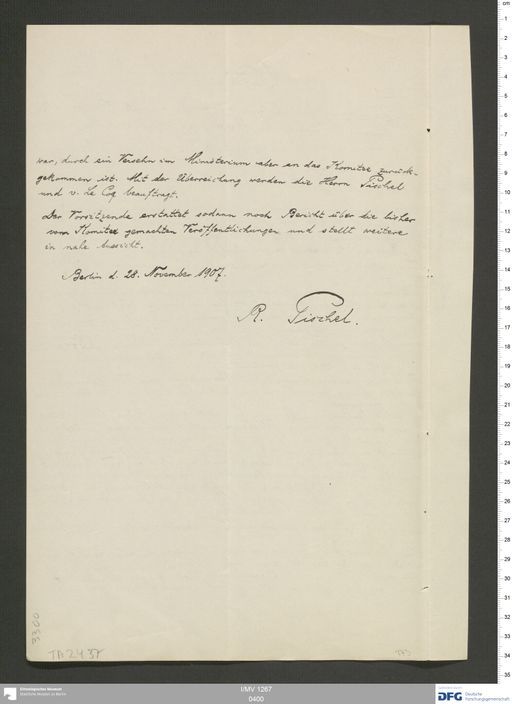 war, durch ein Versehn im Ministerium aber an das Komitee zurück-
gekommen ist. Mit der Überreichung werden die Herrn Pischel
und v. Le Coq beauftragt.
Der Vorsitzende erstattet sodann noch Bericht über die bisher
vom Komitee gemachten Veröffentlichungen und stellt weitere
in nahe Aussicht.
Berlin d. 28. November 1907.
R. Pischel.
3300
TA 2437
Ethnologisches Museum
Staatliche Museen zu Berlin
I/MV 1267
0400
DFG
Deutsche
Forschungsgemeinschaft
cm
1
2
3
4
5
6
7
8
9
10
11
12
13
14
15
16
17
18
19
20
21
22
23
24
25
26
27
28
29
30
31
32
33
34
35